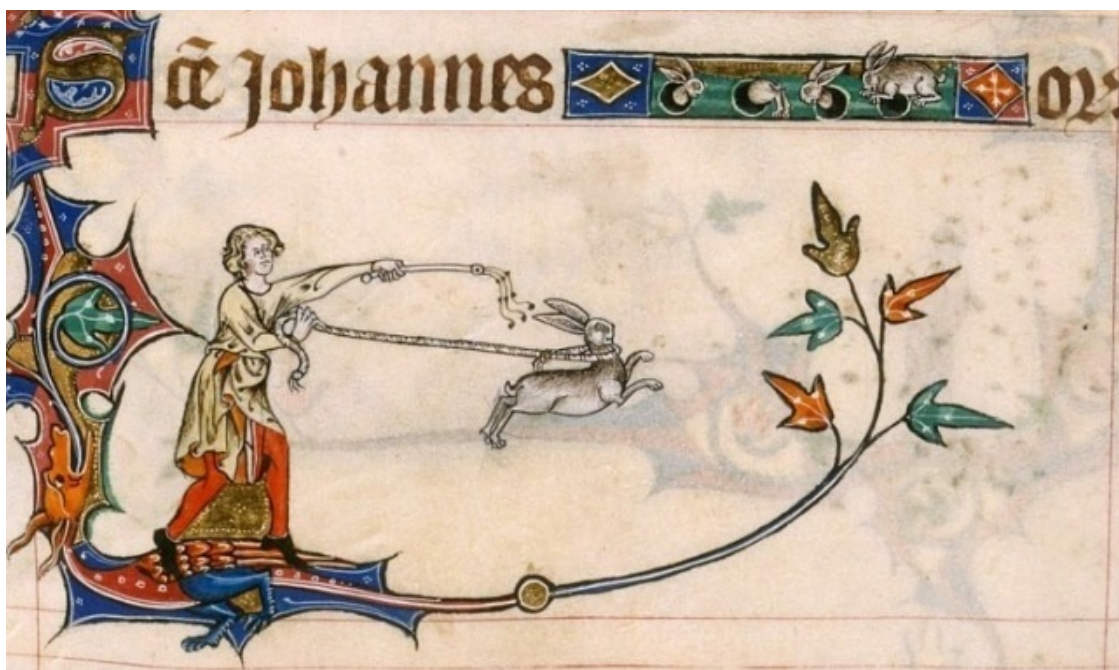 Scē Johannes ora